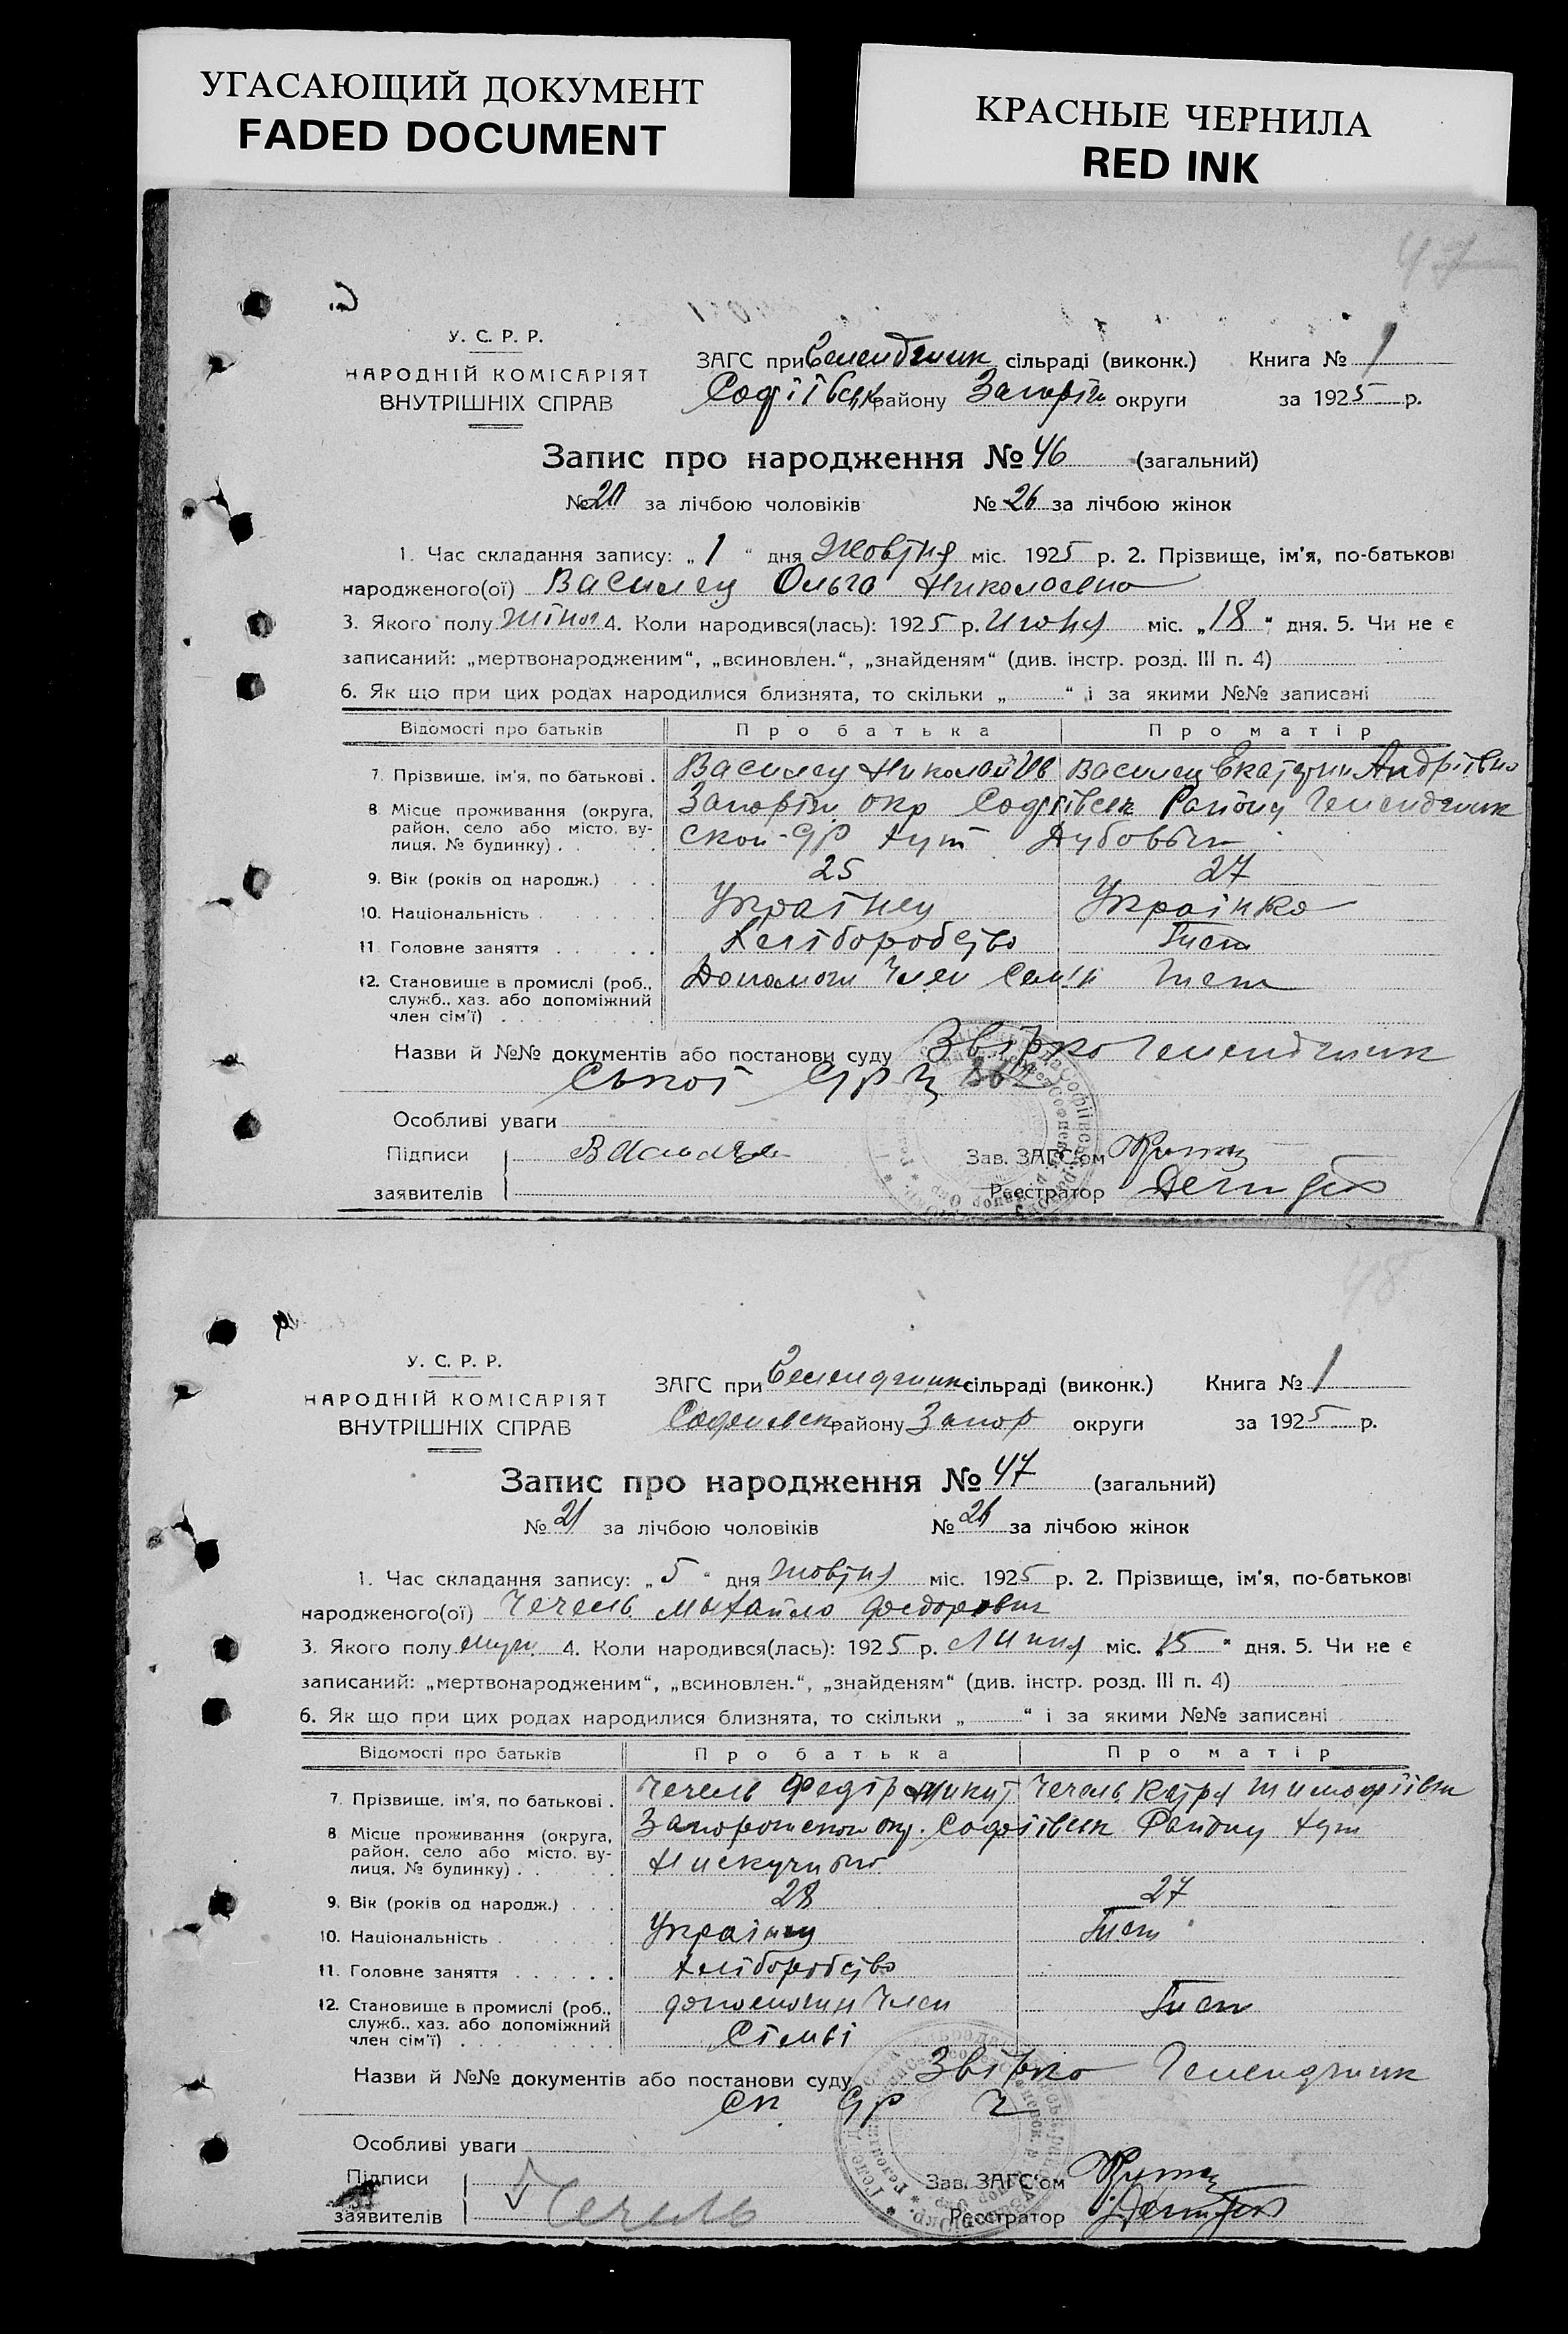 УГАСАЮЩИЙ ДОКУМЕНТ
FADED DOCUMENT
КРАСНЫЕ ЧЕРНИЛА
RED INK
47
У. С. Р. Р.
НАРОДНІЙ КОМІСАРІЯТ
ВНУТРІШНІХ СПРАВ
ЗАГС при сільраді (виконк.) Книга № 1
Софіївськ району Запоріж округи за 1925 р.
Запис про народження № 46 (загальний)
№ 20 за лічбою чоловіків № 26 за лічбою жінок
1. Час складання запису: „1“ дня Жовтня міс. 1925 р. 2. Прізвище, ім'я, по-батькові
народженого(ої) Василец Ольга Николаевна
3. Якого полу жіноч 4. Коли народився(лась): 1925 р. Июня міс. „18“ дня. 5. Чи не є
записаний: „мертвонародженим“, „всиновлен.“, „знайденям“ (див. інстр. розд. III п. 4)
6. Як що при цих родах народилися близнята, то скільки „ “ і за якими №№ записані
Відомості про батьків Про батька Про матір
7. Прізвище, ім'я, по батькові . Василец Николай Ів Василец Екатерин Андріївно
8. Місце проживання (округа, район, село або місто, вулиця, № будинку) . Запоріж окр Софіївськ Району Гелендж
ской С/Р хут
9. Вік (років од народж.) . . . 25 27
10. Національність . Українец Українка
11. Головне заняття . Хліборобство Тиест
12. Становище в промислі (роб., служб., хаз. або допоміжний член сім'ї) . Допомож Член Семьи Тиест
Назви й №№ документів або постанови суду Звірко
ської С/Р
Особливі уваги
Підписи
заявителів
Зав. ЗАГС'ом
Реєстратор
48
У. С. Р. Р.
НАРОДНІЙ КОМІСАРІЯТ
ВНУТРІШНІХ СПРАВ
ЗАГС при сільраді (виконк.) Книга № 1
Софиевск району Запор округи за 1925 р.
Запис про народження № 47 (загальний)
№ 21 за лічбою чоловіків № 26 за лічбою жінок
1. Час складання запису: „5“ дня жовтня міс. 1925 р. 2. Прізвище, ім'я, по-батькові
народженого(ої) Чечель Михайло Федорович
3. Якого полу муж. 4. Коли народився(лась): 1925 р. Липня міс. „15“ дня. 5. Чи не є
записаний: „мертвонародженим“, „всиновлен.“, „знайденям“ (див. інстр. розд. III п. 4)
6. Як що при цих родах народилися близнята, то скільки „ “ і за якими №№ записані
Відомості про батьків Про батька Про матір
7. Прізвище, ім'я, по батькові . Чечель Федір Никит Чечель Катря Тимофіївн
8. Місце проживання (округа, район, село або місто, вулиця, № будинку) . Запорожской окр. Софіївськ Району хут
9. Вік (років од народж.) . . . 28 27
10. Національність . Украінец Тиест
11. Головне заняття . . . . . . Хліборобство
12. Становище в промислі (роб., служб., хаз. або допоміжний член сім'ї) . Член Тиест
Сімьі
Назви й №№ документів або постанови суду Звірко
ск С/Р
Особливі уваги
Підписи
заявителів
Чечель
Зав. ЗАГС'ом
Реєстратор